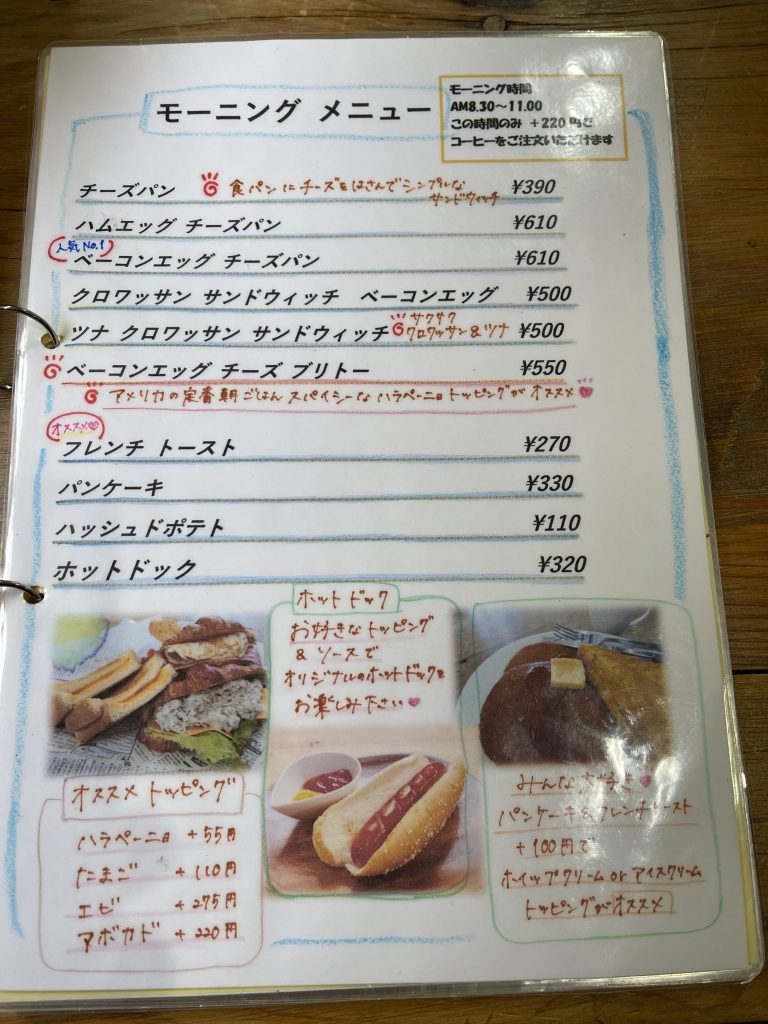 モーニング メニュー
モーニング時間
AM8.30～11.00
この時間のみ +220円で
コーヒーをご注文いただけます
チーズパン
食パンにチーズをはさんでシンプルな
サンドウィッチ
¥390
ハムエッグ チーズパン ¥610
人気No.1
ベーコンエッグ チーズパン ¥610
クロワッサン サンドウィッチ ベーコンエッグ ¥500
ツナ クロワッサン サンドウィッチ
サクサク
クロワッサン&ツナ
¥500
ベーコンエッグ チーズ ブリトー ¥550
アメリカの定番朝ごはん スパイシーな ハラペーニョトッピングが オススメ
オススメ
フレンチ トースト ¥270
パンケーキ ¥330
ハッシュドポテト ¥110
ホットドック ¥320
ホットドック
お好きなトッピング
& ソースで
オリジナルのホットドックを
お楽しみ下さい
オススメ トッピング
ハラペーニョ +55円
たまご +110円
エビ +275円
アボカド +220円
みんな大好き
パンケーキ&フレンチトースト
+100円で
ホイップクリーム or アイスクリーム
トッピングがオススメ